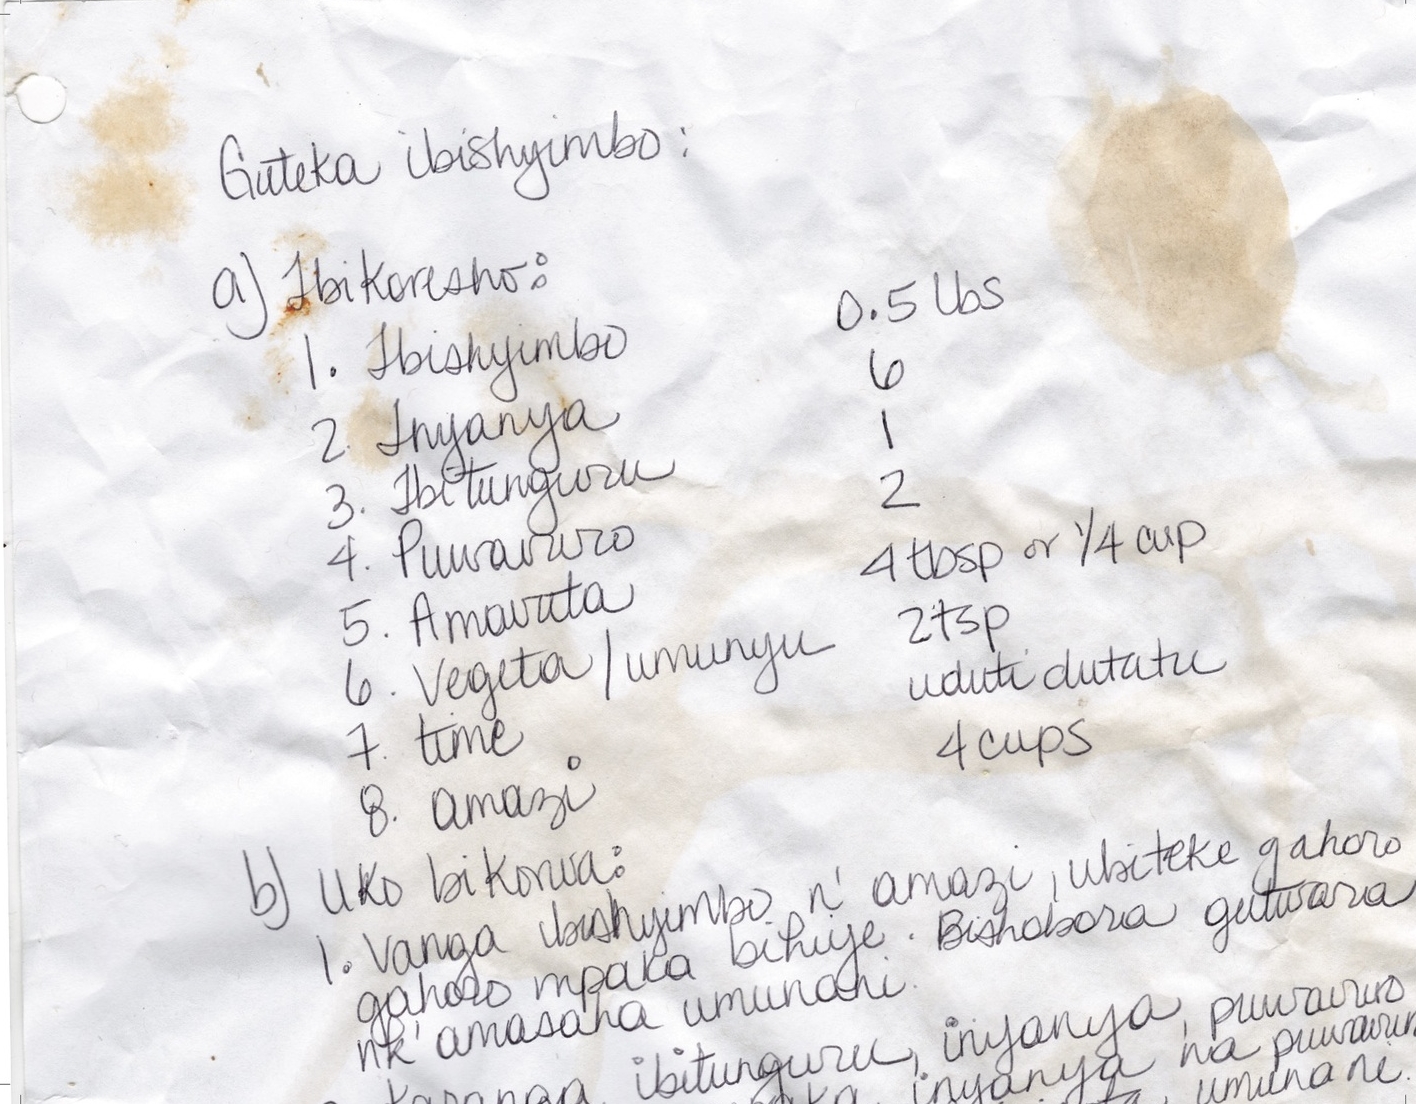 Guteka ibishyimbo:
a) Ibikoresho:
1. Ibishyimbo 0.5 lbs
2. Inyanya 6
3. Ibitunguru 1
4. Puwavuro 2
5. Amavuta 4 tbsp or 1/4 cup
6. Vegeta/umunyu 2 tsp
7. time uduti dutatu
8. amazi 4 cups
b) Uko bikorwa:
1. Vanga ibishyimbo n' amazi, ubiteke gahoro
gahoro mpaka bihiye. Bishobora gutwara
nk' amasaha umunani.
Karanga ibitunguru, inyanya, puwavuro
inyanya na puwavuro
umunani.